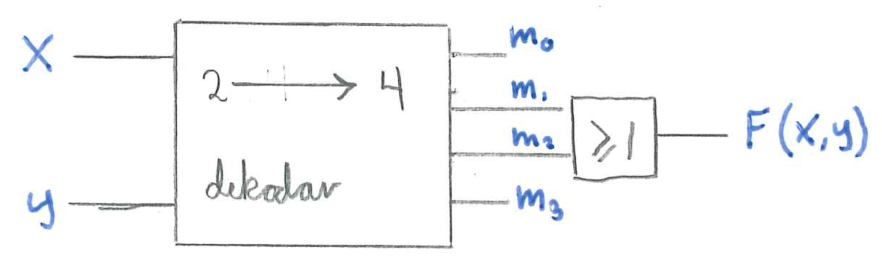 X
y
2 → 4
dekodar
m₀
m₁
m₂
m₃
≥1
F(x,y)